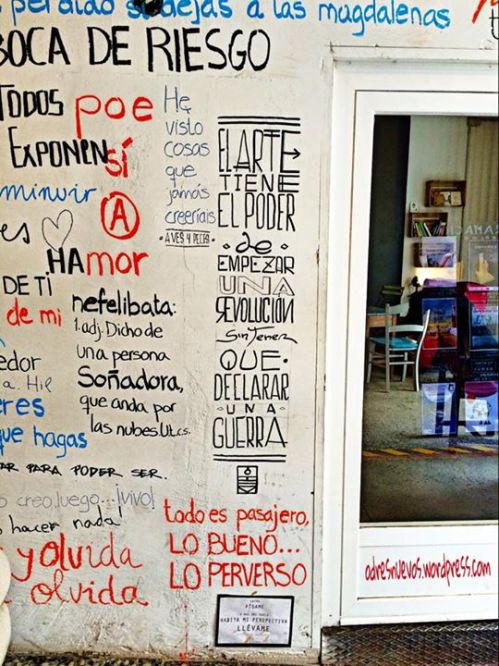 perdido si dejas a las magdalenas
BOCA DE RIESGO
TODOS
EXPONEN
poe
sí
A
He
visto
cosas
que
jamás
creeríais
AVES Y PECES
EL ARTE
TIENE
EL PODER
de
EMPEZAR
UNA
REVOLUCIÓN
sin Tener
QUE
DECLARAR
UNA
GUERRA
minuir
es
HAmor
DE TI
de mi
nefelibata:
1. adj. Dicho de
una persona
Soñadora,
que anda por
las nubes. U.t.c.s.
edor
a. Hil
eres
que hagas
AR PARA PODER SER.
creo, luego... ¡vivo!
hacer nada!
y olvida
olvida
todo es pasajero,
LO BUENO...
LO PERVERSO
PÍDAME
HABITA MI PERSPECTIVA
LLÉVAME
adresnuevos.wordpress.com